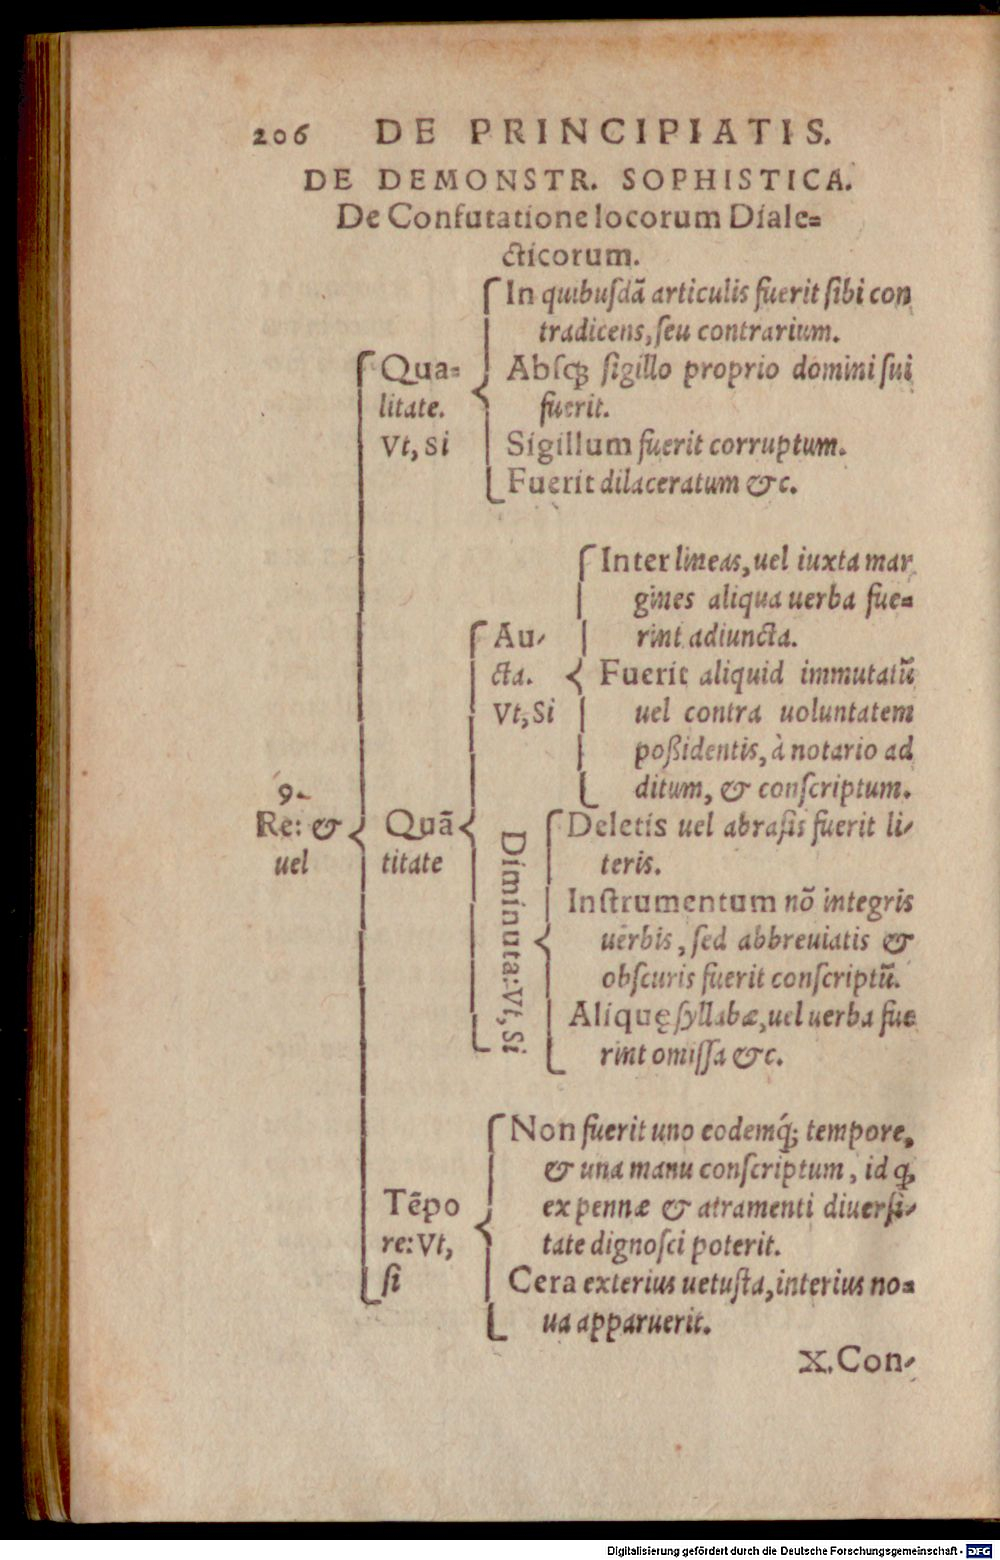 206 DE PRINCIPIATIS.
DE DEMONSTR. SOPHISTICA.
De Confutatione locorum Diale=
cticorum.
9.
Re: &
uel
Qua=
litate.
Vt, Si
In quibuſdā articulis fuerit ſibi con
tradicens, ſeu contrarium.
Abſqꝫ ſigillo proprio domini ſui
fuerit.
Sigillum fuerit corruptum.
Fuerit dilaceratum & c.
Quā
titate
Au-
cta.
Vt, Si
Inter lineas, uel iuxta mar
gines aliqua uerba fue=
rint adiuncta.
Fuerit aliquid immutatū
uel contra uoluntatem
poßidentis, à notario ad
ditum, & conſcriptum.
Diminuta: Vt, Si
Deletis uel abraſis fuerit li-
teris.
Inſtrumentum nō integris
uerbis, ſed abbreuiatis &
obſcuris fuerit conſcriptū.
Aliquę ſyllabæ, uel uerba fue
rint omiſſa & c.
Tēpo
re: Vt,
ſi
Non fuerit uno eodemq́; tempore,
& una manu conſcriptum, id qꝫ
ex pennæ & atramenti diuerſi-
tate dignoſci poterit.
Cera exterius uetuſta, interius no=
ua apparuerit.
X. Con-
Digitalisierung gefördert durch die Deutsche Forschungsgemeinschaft - DFG